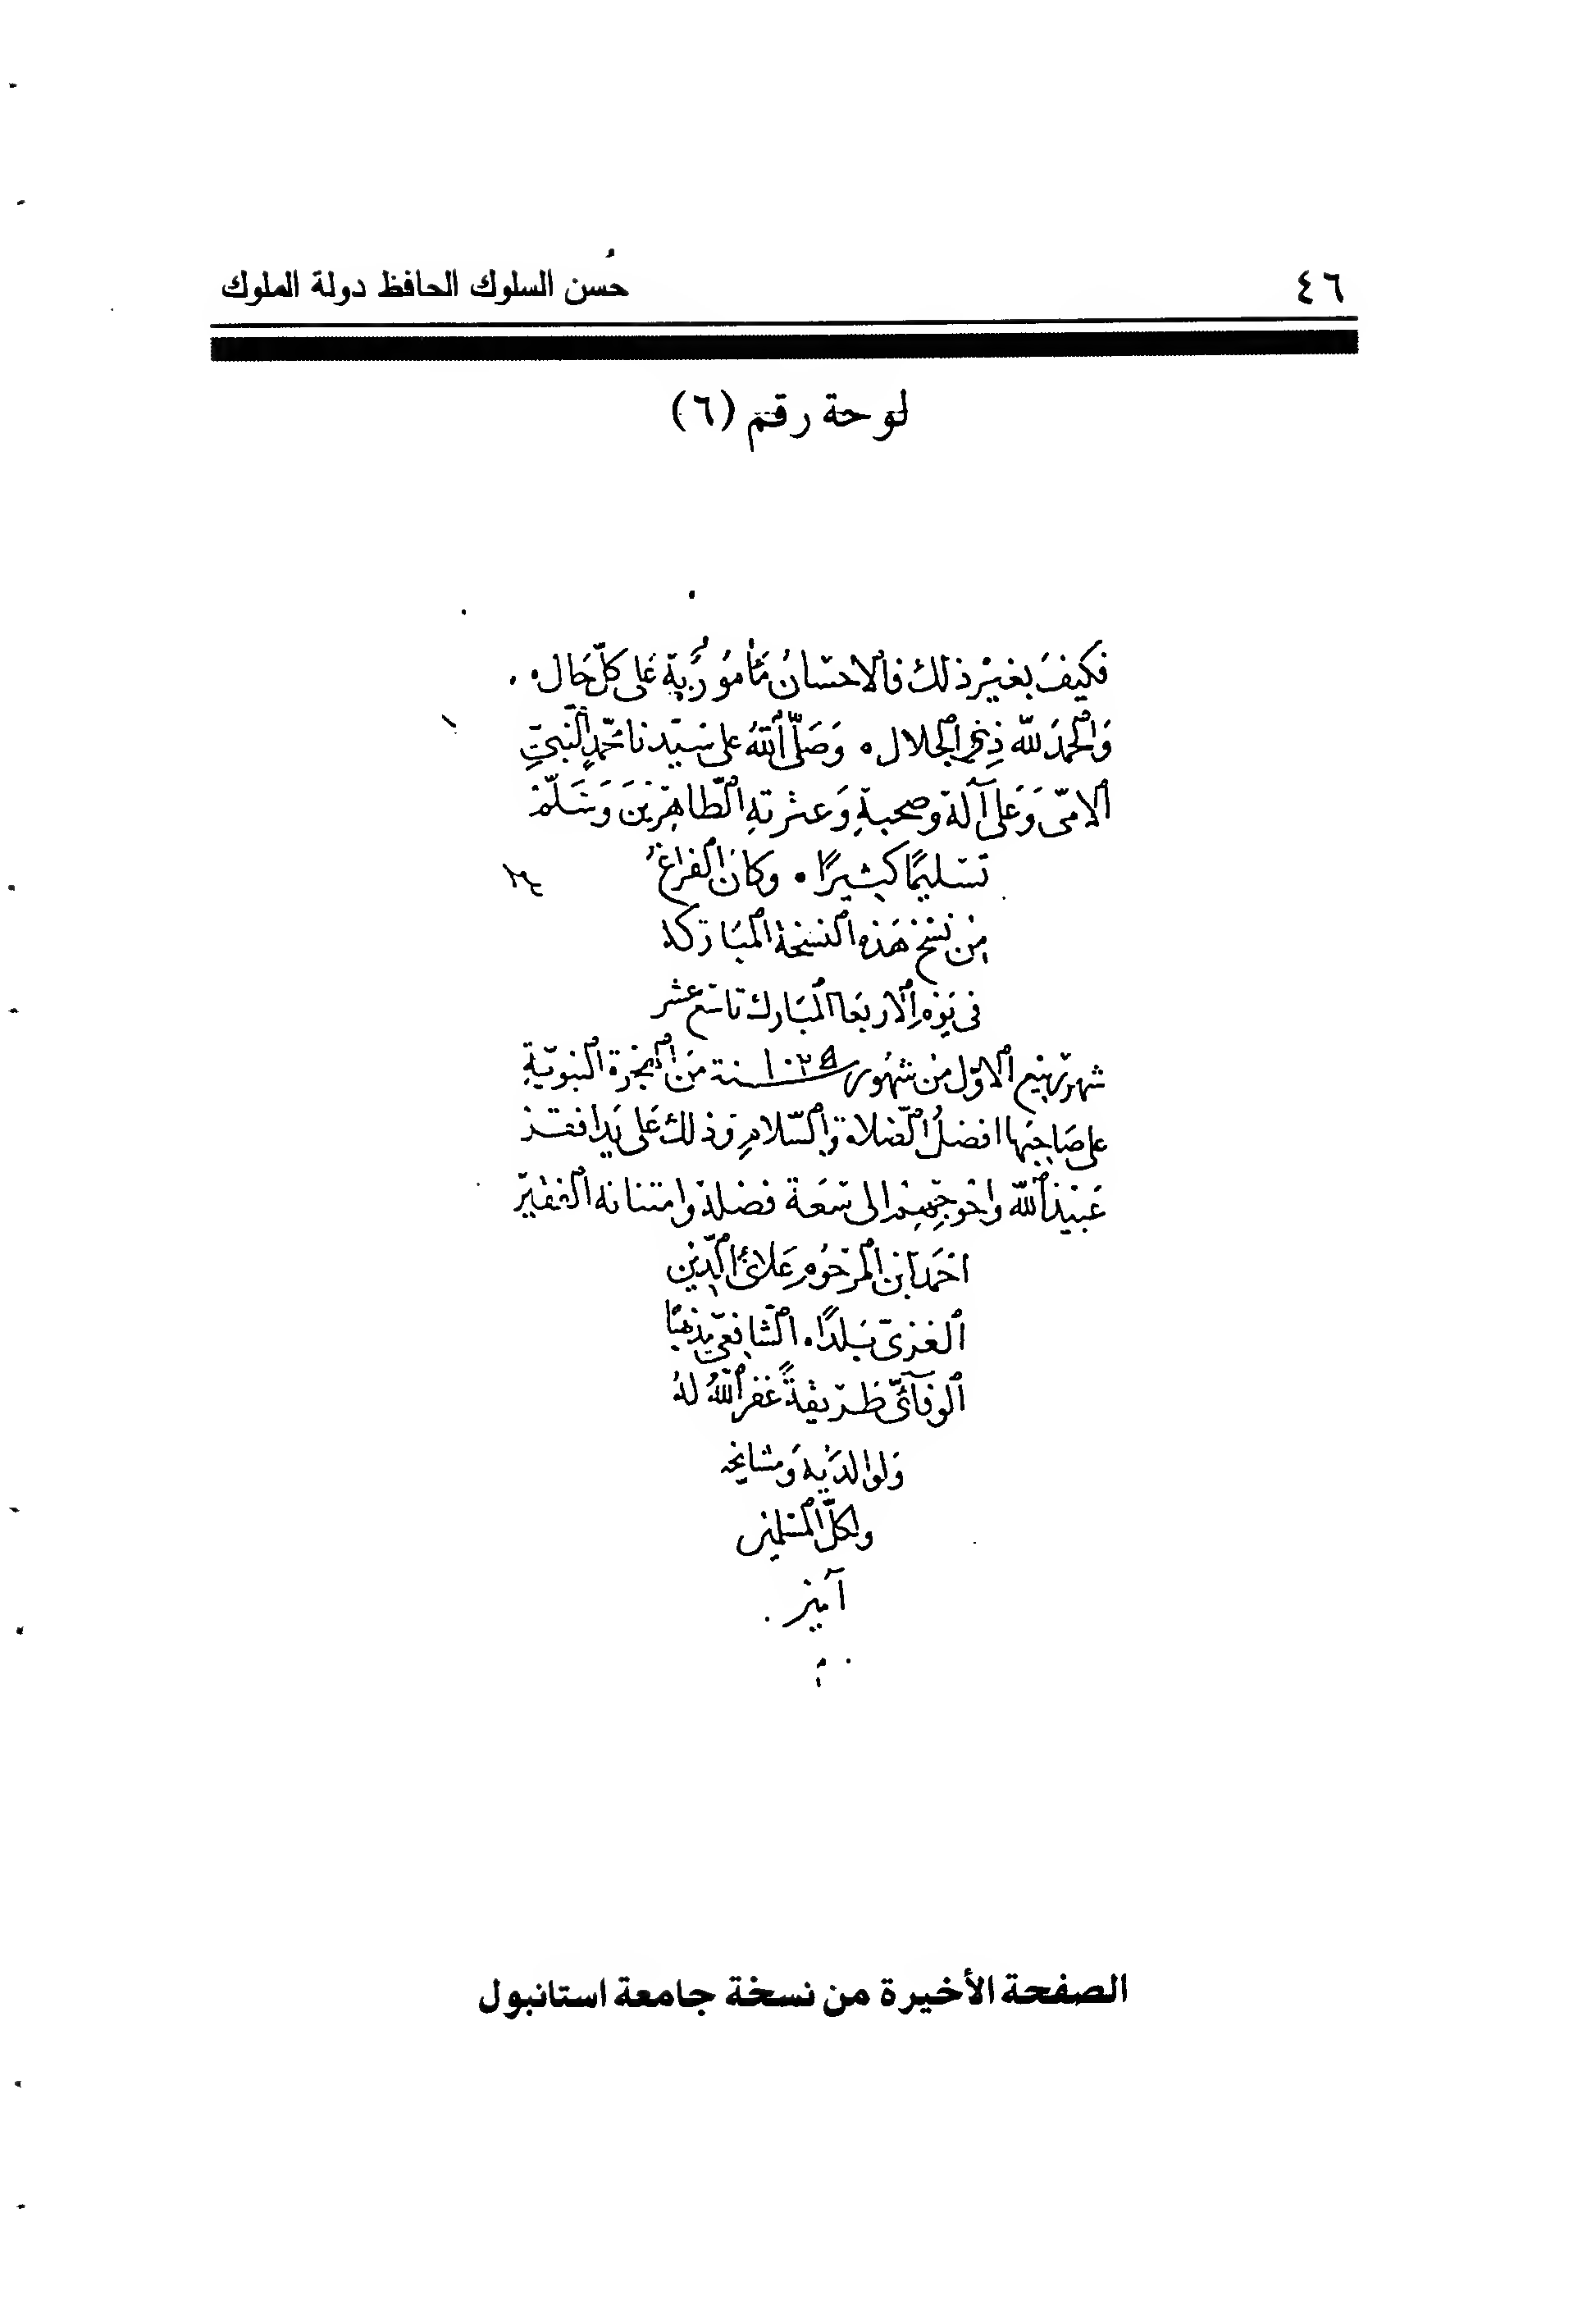 ٤٦
حُسن السلوك الحافظ دولة الملوك
لوحة رقم (٦)
فكيفَ بغيْر ذلك فالاحسَانُ مَأمُورٌ بِهِ عَلى كلّ حَال ٠
وَالحمدُ للّه ذِى الجلال ٠ وَصَلّى اللّهُ على سَيّدنا محمّدٍ النّبيِّ
الامّى وَعَلى آله وصحبهِ وَعترتهِ الطّاهِرينَ وَسَلّمْ
تسْليمًا كثيرًا ٠ وكانَ الفراغُ
مِن نسْخ هَذه النسخة المبَاركه
فى يَوْمِ الاربَعا المبَارك تاسَع عشر
شهر رَبيع الاوّل مِن شهُور سنة ١٠٣٥ مَن الهجرة النبويّةِ
على صَاحِبهَا افضلُ الصّلاة وَالسّلامِ وَذلك عَلى يَد افقر
عَبيْد اللّه وَاحْوجِهِمْ الى سَعَة فضله وَامتنانه الفقيْر
احْمَد ابن المرْحُوم عَلائ الدّين
الغزىّ بَلدًا ٠ الشّافعىّ مذهبًا
الوفآئىّ طَريقةً غفر اللّهُ لهُ
وَلوَالدَيْه وَمشايخه
ولكلّ المسْلمين
آمين ٠
الصفحة الأخيرة من نسخة جامعة استانبول